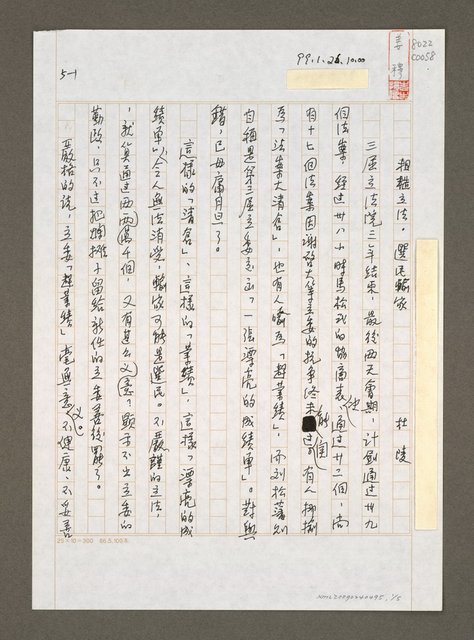 99.1.26.10:00
8022
C0058
姜穆
5-1
粗糙立法。選民輸家
杜陵
三屆立法院三年結束,最後兩天會期,計劃通過卅九
個法案,經過廿八小時馬松式的協商表決,通過廿二個,尚
有十七個法案因謝啓大等立委的抗爭終未能過,有人揶揄
為「法案大清倉」,也有人
自稱是第三屆立委交出「一張漂亮的成績單」。對與
錯,已毋庸月旦了。
這樣的「清倉」、這樣的「業績」、這樣「漂亮的成
績單」令人無法消受,輸家可能是選民。不嚴謹的立法,
,就算通過兩萬千個,又有甚麼意義?顯示不出立委的
勤政,只不過把爛攤子留給新任的立委善後罷了。
嚴格的說,立委「趕業績」毫無意義。不健康、不妥善
25×10=250
NML20090240495, 1/5